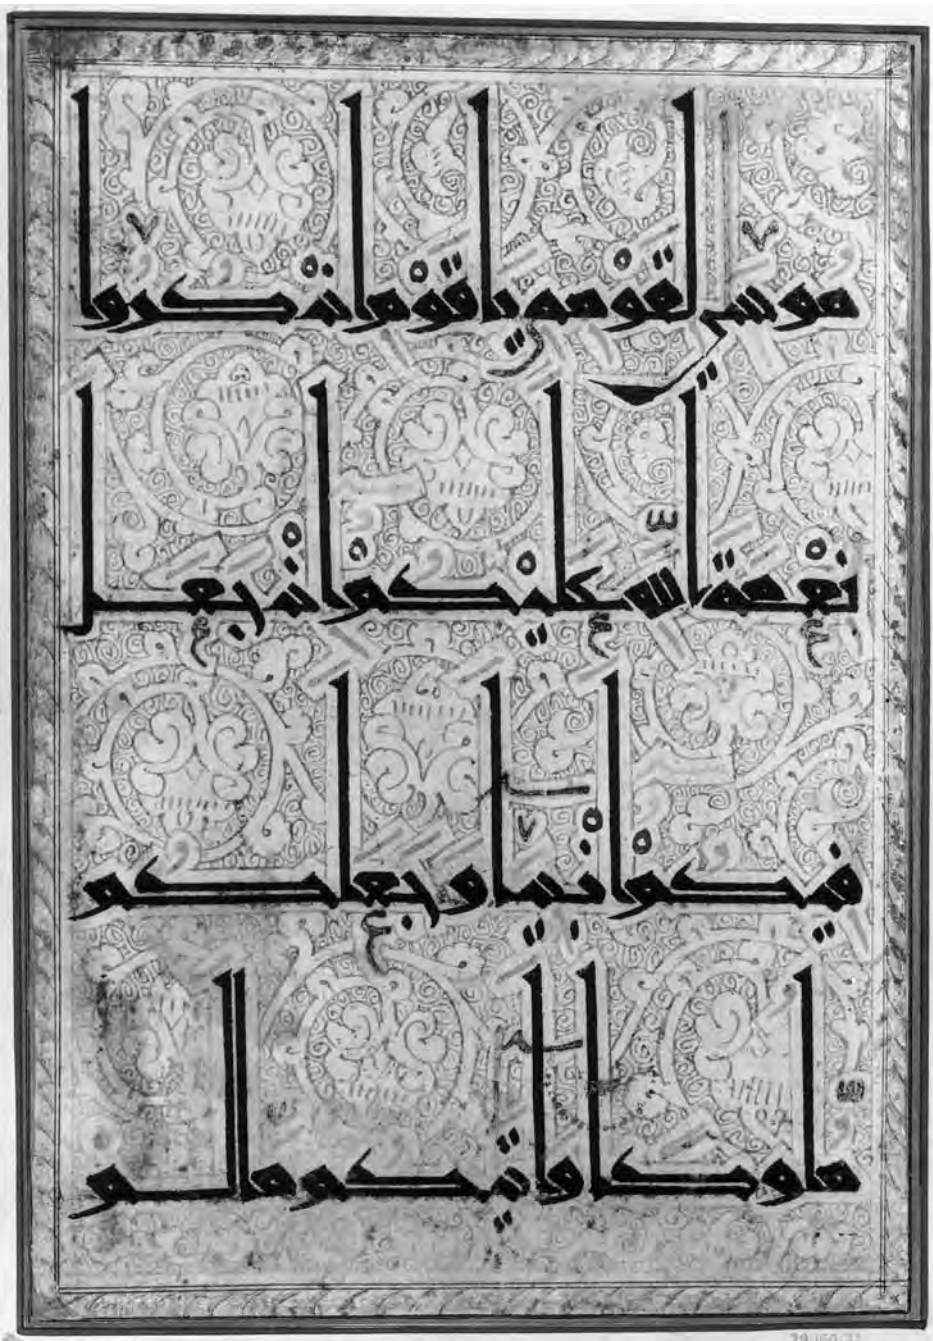 موسى لقومه ياقوم اذكروا
نعمة الله عليكم اذ جعل
فيكم انبيا وجعلكم
ملوكا واتيكم مالم